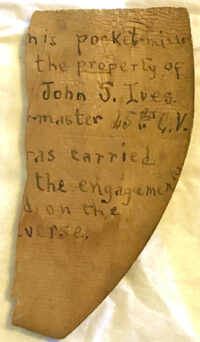 his pocket-mirror
the property of
John S. Ives.
r-master 15th C.V.
was carried
the engagemen
d on the
verse.